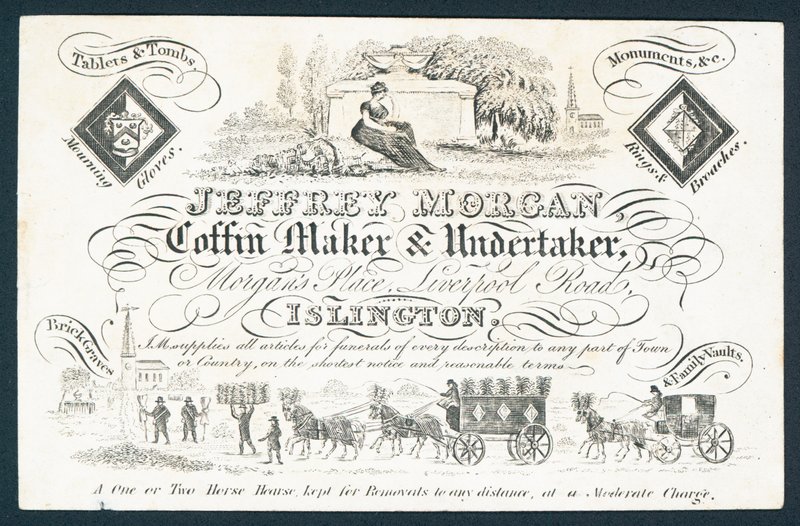 Tablets & Tombs,
Monuments, &c.
Mourning Gloves.
Rings & Broaches.
JEFFREY MORGAN,
Coffin Maker & Undertaker,
Morgan's Place, Liverpool Road,
ISLINGTON.
Brick Graves
J.M. supplies all articles for funerals of every description to any part of Town
or Country, on the shortest notice and reasonable terms
& Family Vaults.
A One or Two Horse Hearse, kept for Removals to any distance, at a Moderate Charge.